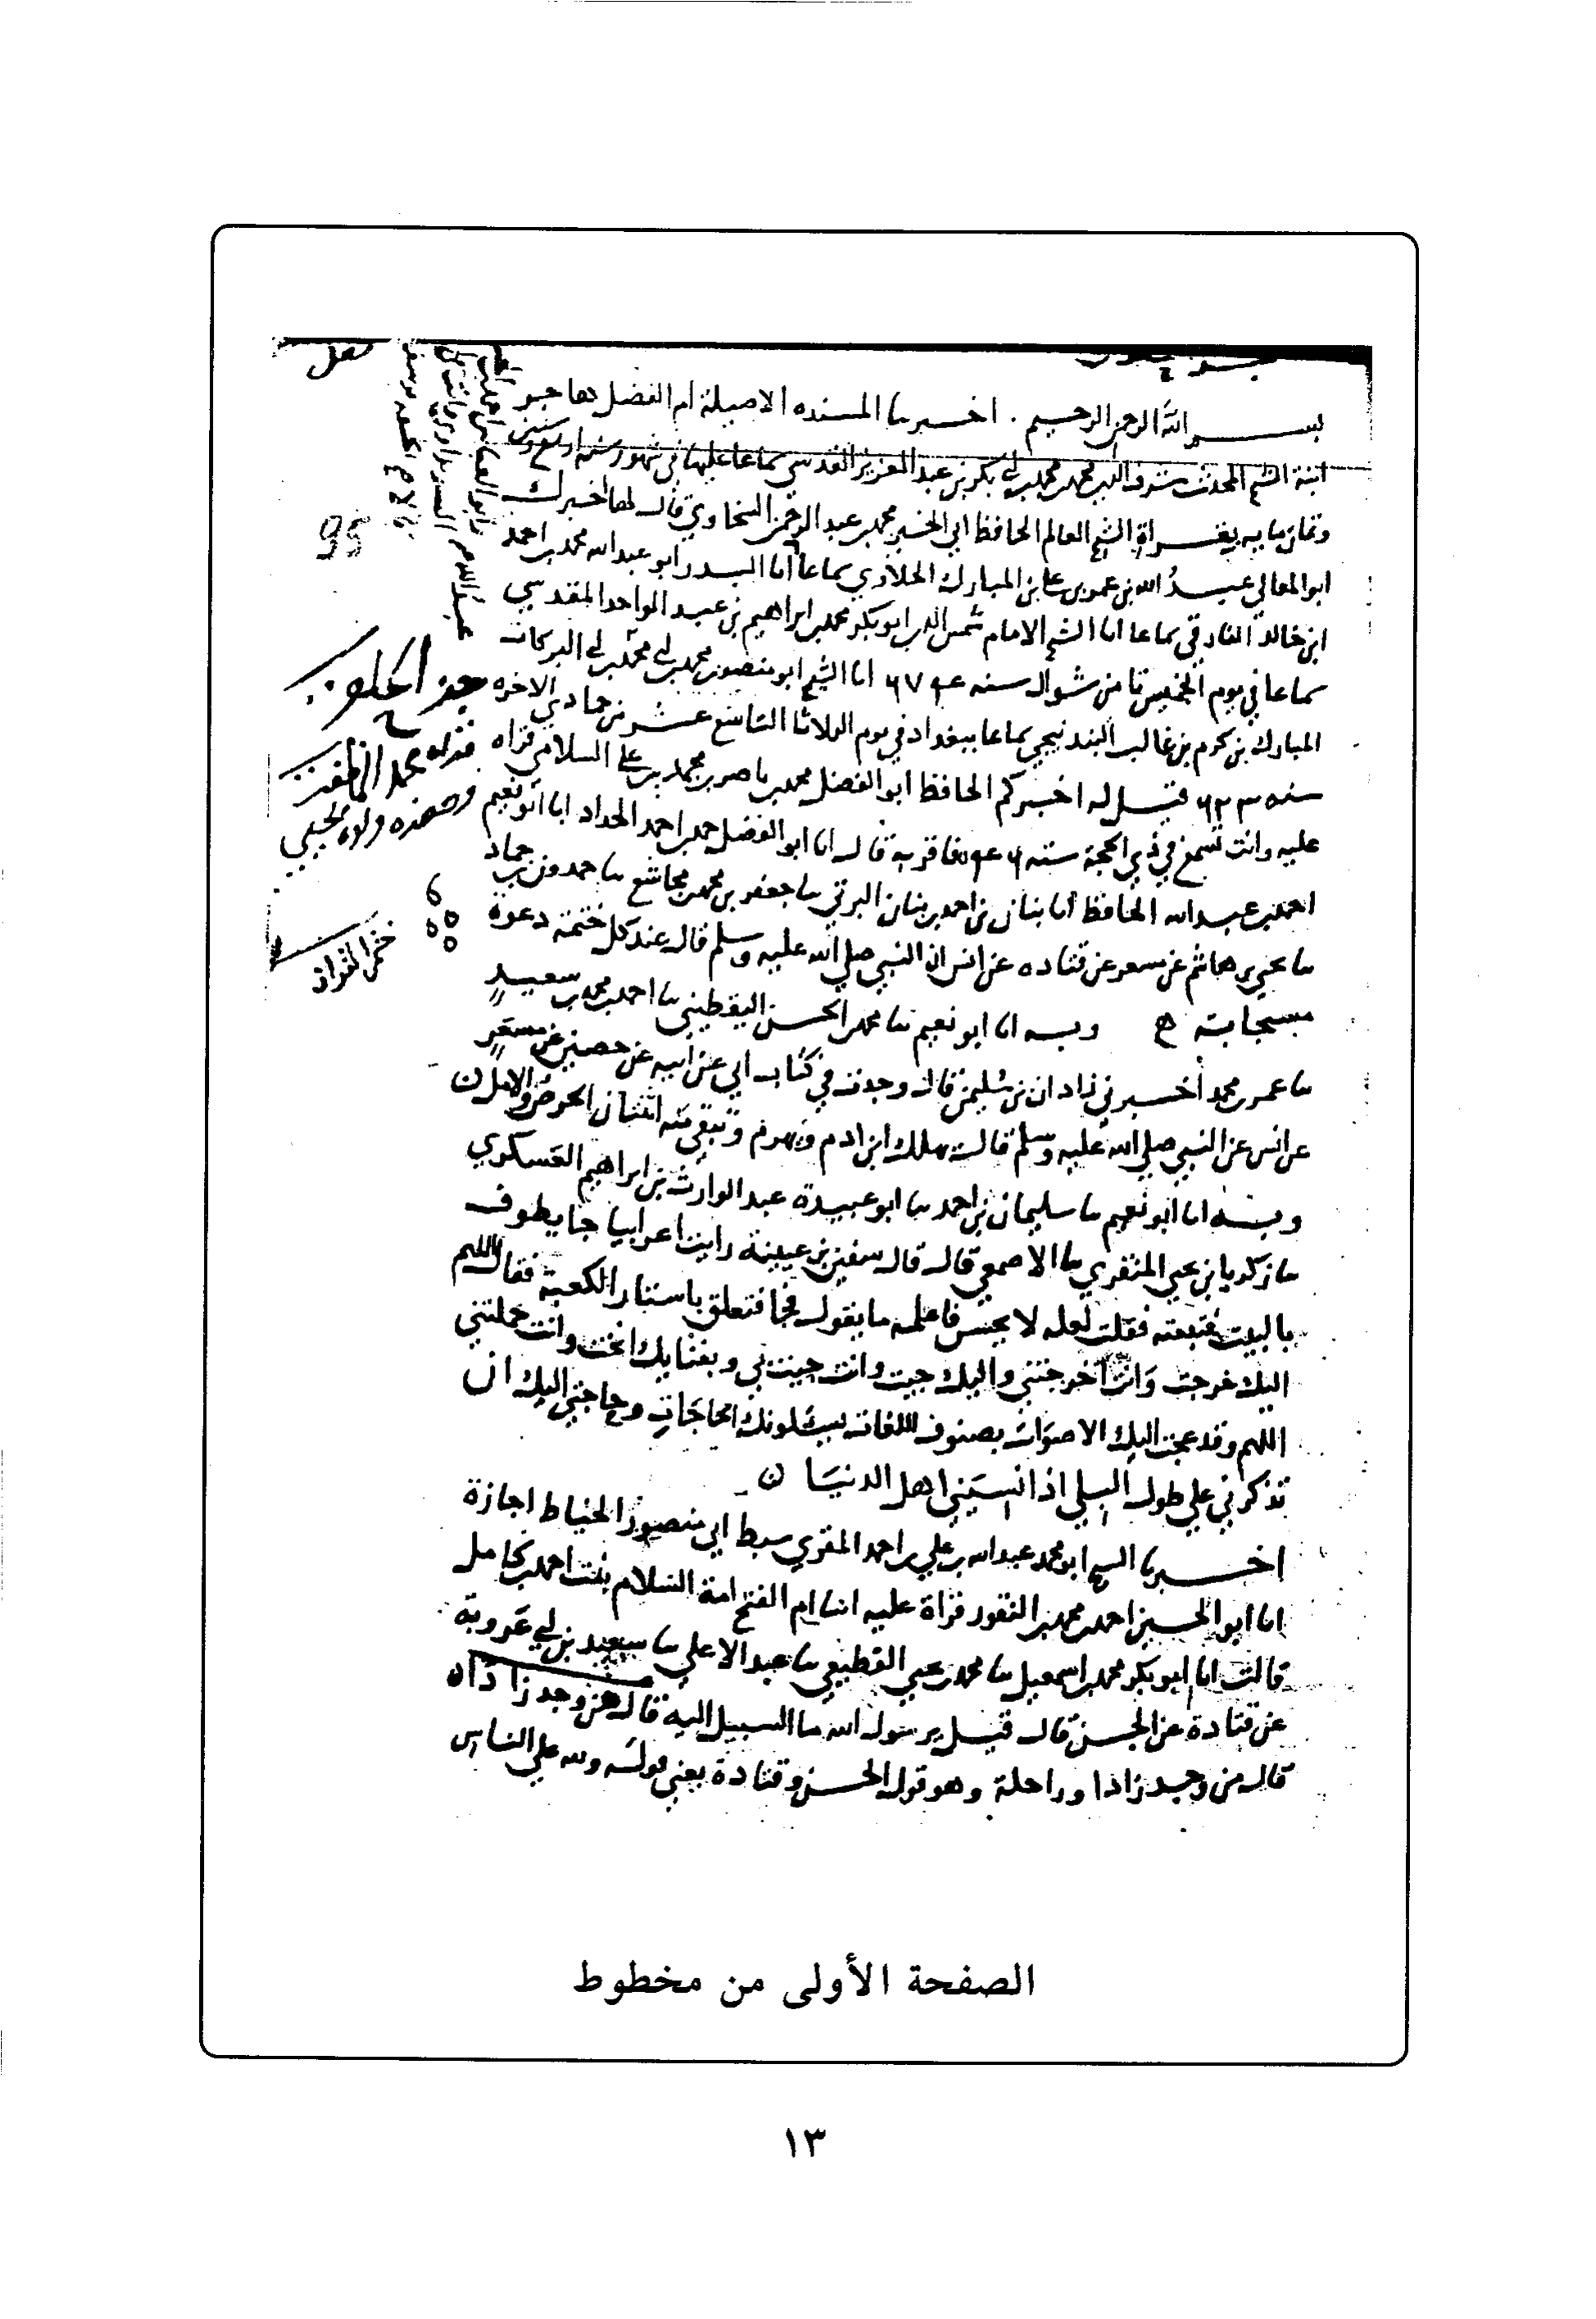 بسم الله الرحمن الرحيم . اخبرنا المسنده الاصيلة ام الفضل هاجر
ابنة الشيخ المحدث شرف الدين محمد بن محمد بن ابي بكر بن عبد العزيز القدسي سماعا عليها في شهور سنه اربع وستين
وثمان مايه بقراة الشيخ العالم الحافظ ابي الخير محمد بن عبد الرحمن السخاوي قال لها اخبرك
ابو المعالي عبد الله بن عمر بن علي بن المبارك الحلاوي سماعا انا البدر ابو عبد الله محمد بن احمد
ابن خالد الفارقي سماعا انا الشيخ الامام شمس الدين ابو بكر محمد بن ابراهيم بن عبد الواحد المقدسي
سماعا في يوم الخميس ثامن شوال سنه انا الشيخ ابو منصور محمد بن ابي محمد بن ابي البركات
المبارك بن كرم بن غالب البندنيجي سماعا ببغداد في يوم الثلاثا التاسع عشر من جمادي الاخره
سنه قيل له اخبركم الحافظ ابو الفضل محمد بن ناصر بن محمد بن علي السلامي قراه
عليه وانت تسمع في ذي الحجة سنه فاقر به قال انا ابو الفضل حمد بن احمد الحداد انا ابو نعيم
احمد بن عبد الله الحافظ انا بنان بن احمد بن بنان البرتي نا جعفر بن محمد بن مجاشع نا حمدون بن حماد
نا يحيى بن هاشم عن مسعر عن قتاده عن انس ان النبي صلي الله عليه وسلم قال عند كل ختمة دعوة
مستجابة وبه انا ابو نعيم نا محمد بن الحسن اليقطيني نا احمد بن محمد بن سعيد
نا عمر بن محمد اخبرني زادان بن سليمن قال وجدت في كتاب ابي عن ابيه عن حصين عن مسعر
عن انس عن النبي صلي الله عليه وسلم قال يهلك ابن ادم ويهرم وتبقي منه اثنتان الحرص والامل ن
وبه انا ابو نعيم نا سليمان بن احمد نا ابو عبيدة عبد الوارث بن ابراهيم العسكري
نا زكريا بن يحيي المنقري نا الاصمعي قال قال سفين بن عيينة رايت اعرابيا جا يطوف
بالبيت فتبعته فقلت لعله لا يحسن فاعلمه ما يقول فجا فتعلق باستار الكعبة فقال اللهم
اليك خرجت وانت اخرجتني واليك جيت وانت جيت بي وبفنايك انخت وانت حملتني
اللهم وقد عجت اليك الاصوات بصنوف اللغات يسئلونك الحاجات وحاجتي اليك ان
تذكرني علي طول البلي اذا نسيني اهل الدنيا ن
اخبرنا الشيخ ابو محمد عبد الله بن علي بن احمد المقري سبط ابي منصور الخياط اجازة
انا ابو الحسين احمد بن محمد بن النقور قراة عليه انا ام الفتح امة السلام بنت احمد بن كامل
قالت انا ابو بكر محمد بن اسمعيل نا محمد بن يحيي القطيعي نا عبد الاعلي نا سعيد بن ابي عروبة
عن قتادة عن الحسن قال قيل يرسول الله ما السبيل اليه قال من وجد زادا
قال من وجد زادا وراحلة وهو قول الحسن وقتادة يعني قوله ولله علي الناس
95
الصفحة الأولى من مخطوط
١٣